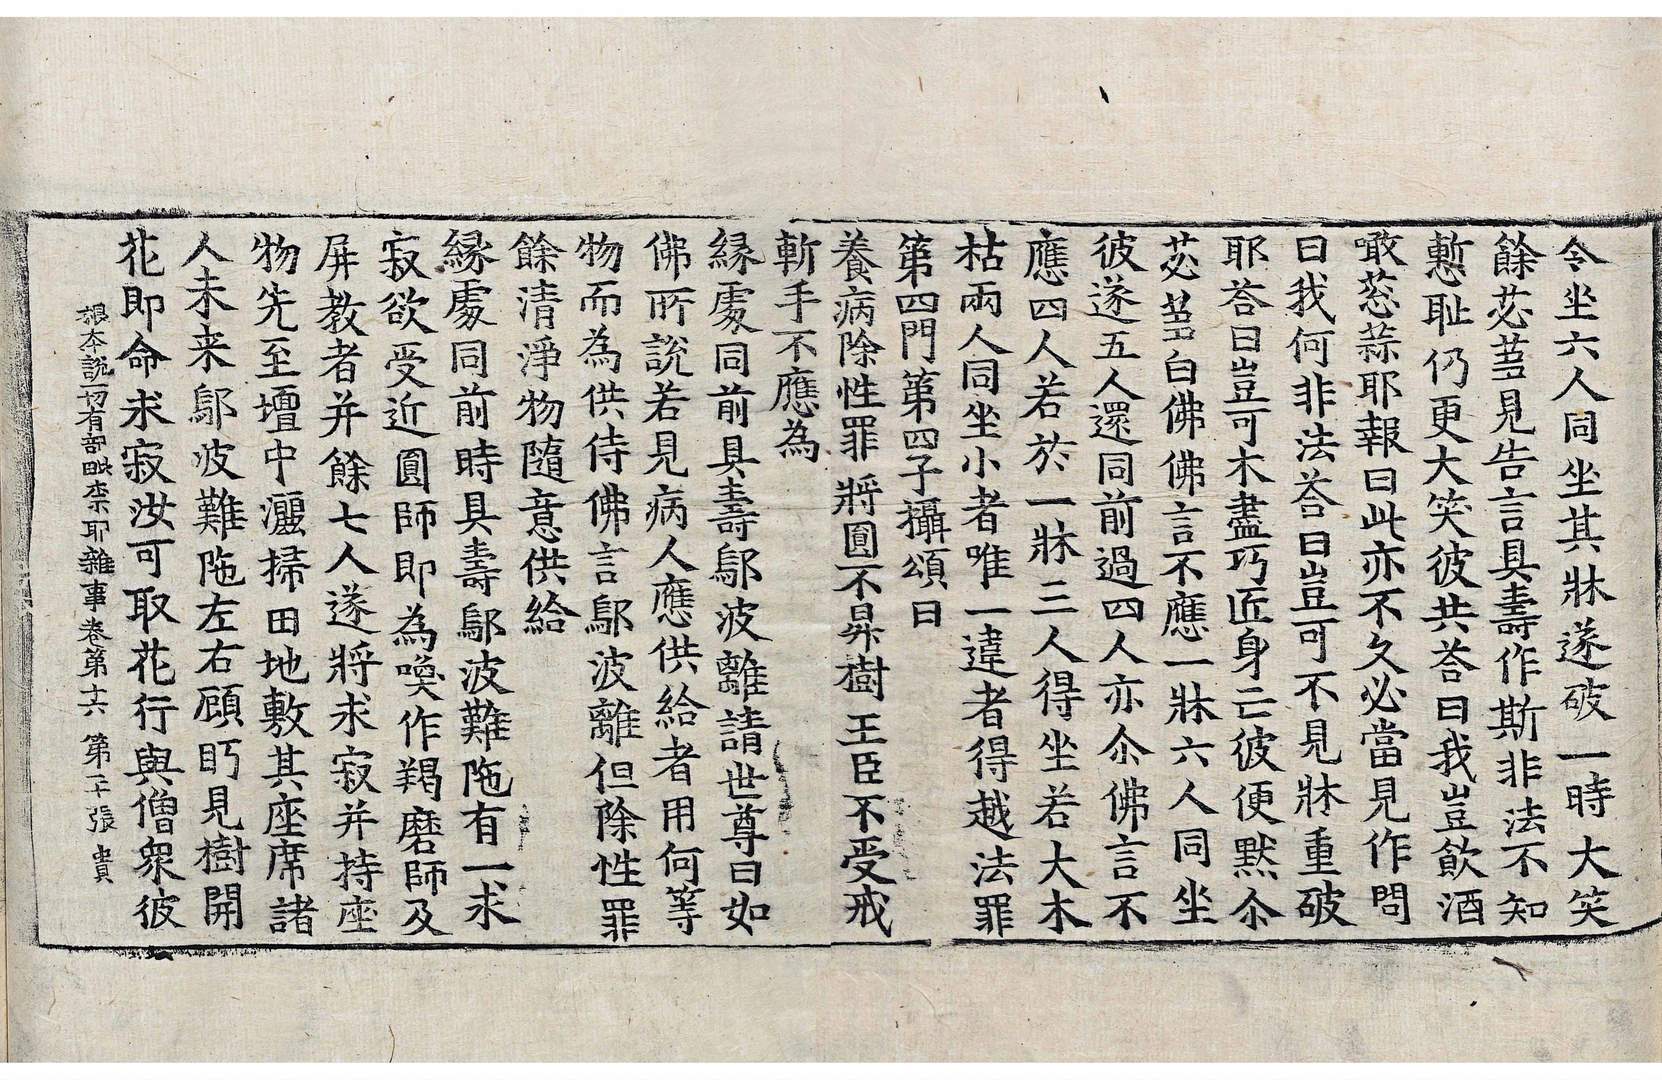 令坐六人同坐其牀遂破一時大笑
餘苾芻見告言具壽作斯非法不知
慙耻仍更大笑彼共荅曰我豈飲酒
噉葱蒜耶報曰此亦不久必當見作問
曰我何非法荅曰豈可不見牀重破
耶荅曰豈可木盡巧匠身亡彼便默尒
苾芻白佛佛言不應一牀六人同坐
彼遂五人還同前過四人亦尒佛言不
應四人若於一牀三人得坐若大木
枯兩人同坐小者唯一違者得越法罪
第四門第四子攝頌曰
養病除性罪 將圓不昇樹 王臣不受戒
斬手不應為
緣處同前具壽鄔波離請世尊曰如
佛所說若見病人應供給者用何等
物而為供侍佛言鄔波離但除性罪
餘清淨物隨意供給
緣處同前時具壽鄔波難陁有一求
寂欲受近圓師即為喚作羯磨師及
屏教者并餘七人遂將求寂并持座
物先至壇中灑掃田地敷其座席諸
人未来鄔波難陁左右顧眄見樹開
花即命求寂汝可取花行與僧衆彼
根本說一切有部毗柰耶雜事卷第十六 第二十張 貴